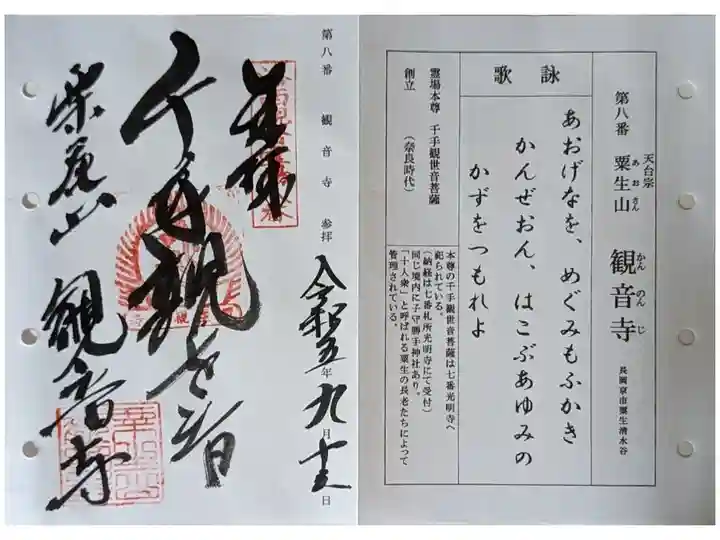 第八番 観音寺 参拝
令和五年九月十五日
奉拝
千手観世音
粟生山 観音寺
第八番 天台宗 粟生山 観音寺 長岡京市粟生清水谷
あおさん
かんのんじ
詠歌
あおげなを、めぐみもふかき
かんぜおん、はこぶあゆみの
かずをつもれよ
霊場本尊 千手観世音菩薩
創立 (奈良時代)
本尊の千手観世音菩薩は七番光明寺へ
祀られている。
(納経は七番札所光明寺にて受付)
同じ境内に子守勝手神社あり。
「十人衆」と呼ばれる粟生の長老たちによって
管理されている。